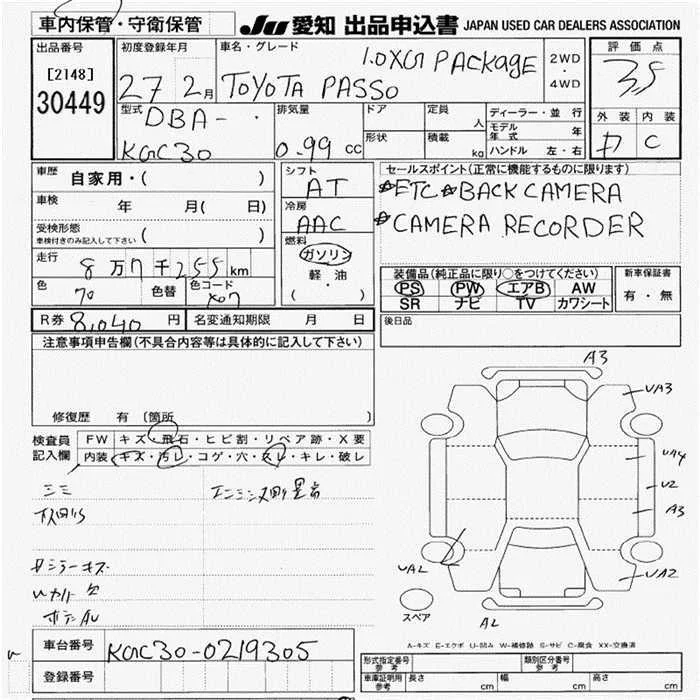 車内保管・守衛保管
JU愛知 出品申込書 JAPAN USED CAR DEALERS ASSOCIATION
出品番号
[2148]
30449
初度登録年月
27 2月
車名・グレード
1.0XG PACKAGE
TOYOTA PASSO
2WD
・
4WD
評価点
3.5
外装 内装
D C
型式
DBA-
KGC30
排気量
0.99 cc
ドア
形状
定員
人
積載
kg
ディーラー・並行
モデル年式 年
ハンドル 左・右
車歴
自家用・( )
車検
年 月( 日)
受検形態
車検付きのみ記入して下さい ( )
走行
8万7千255km
色
70
色替
色コード
X07
シフト
AT
冷房
AAC
燃料
ガソリン
軽・油
( )
セールスポイント(正常に機能するものに限ります)
☆ETC☆BACK CAMERA
☆CAMERA RECORDER
装備品(純正品に限り○をつけてください)
PS PW エアB AW
SR ナビ TV カワシート
新車保証書
有・無
後日品
R券 8,040円
名変通知期限 月 日
注意事項申告欄(不具合内容等は具体的に記入して下さい)
修復歴 有 〔箇所 〕
検査員
記入欄
FW キズ・飛石・ヒビ割・リペア跡・X要
内装 キズ・汚レ・コゲ・穴・スレ・キレ・破レ
A3
UA3
UA4
U2
A3
UA2
UAL
AL
スペア
A-キズ E-エクボ U-凹み W-補修跡 S-サビ C-腐食 XX-交換済
車台番号
KGC30-0219305
登録番号
形式指定番号
参考
類別区分番号
参考
車庫証明用
参考
長さ cm
幅 cm
高さ cm